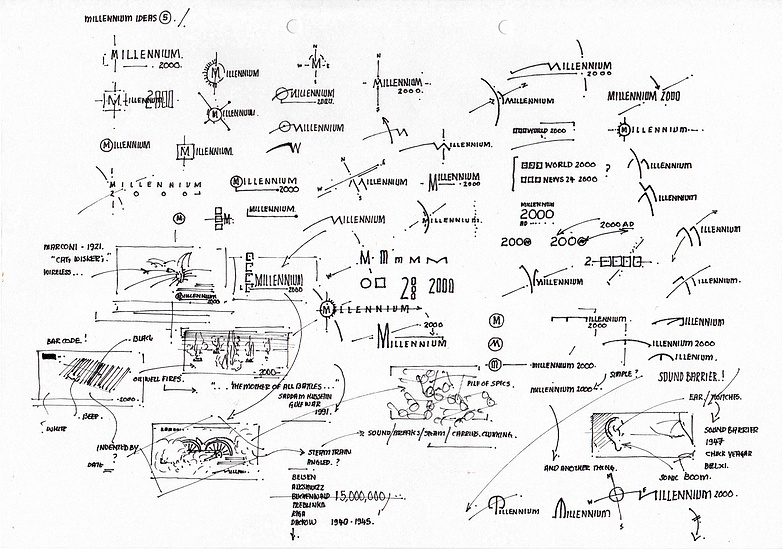 MILLENNIUM IDEAS 5.
MILLENNIUM.
2000.
MILLENNIUM
2000
MILLENNIUM
MILLENNIUM.
MILLENNIUM
MILLENNIUM.
MILLENNIUM
2000
MILLENNIUM
2000
MILLENNIUM.
MILLENNIUM
N
M
W
S
MILLENNIUM
2000.
MILLENNIUM
2000.
MILLENNIUM
MILLENNIUM
MILLENNIUM.
MILLENNIUM
MILLENNIUM
2000
MILLENNIUM
MILLENNIUM.
MILLENNIUM
2000
MILLENNIUM 2000
WORLD 2000
WORLD 2000
NEWS 24 2000
?
MILLENNIUM
MILLENNIUM
2000
AD
2000 AD
2000
2000
MILLENNIUM
MILLENNIUM
MILLENNIUM
MILLENNIUM.
MARCONI - 1921.
"CATS WISKER",
WIRELESS...
MILLENNIUM
2000
MILLENNIUM
2000
28 2000
MILLENNIUM
2000
MILLENNIUM
MILLENNIUM
BAR CODE!
BLACK
2000
WHITE
BEEP.
INDENTED BY
?
DATE
ORWELL FIRES.
2000
"THE MOTHER OF ALL BATTLES..."
SADDAM HUSSEIN
GULF WAR
1991.
PILE OF SPECS.
STEAM TRAIN
ANGLED.?
BELSEN
AUSHWITZ
BUCKENWALD 15,000,000
TREBLINKA
RIGA
DACKOW 1940-1945.
M
MILLENNIUM
2000
MILLENNIUM
MILLENNIUM
MILLENNIUM 2000
MILLENNIUM.
MILLENNIUM 2000
SIMPLE?
SOUND BARRIER.!
EAR/
SOUND BARRIER
1947
CHUCK YEAGAR
BELX1.
SONIC BOOM.
AND ANOTHER THING.
MILLENNIUM
MILLENNIUM
N
W
E
S
MILLENNIUM 2000.